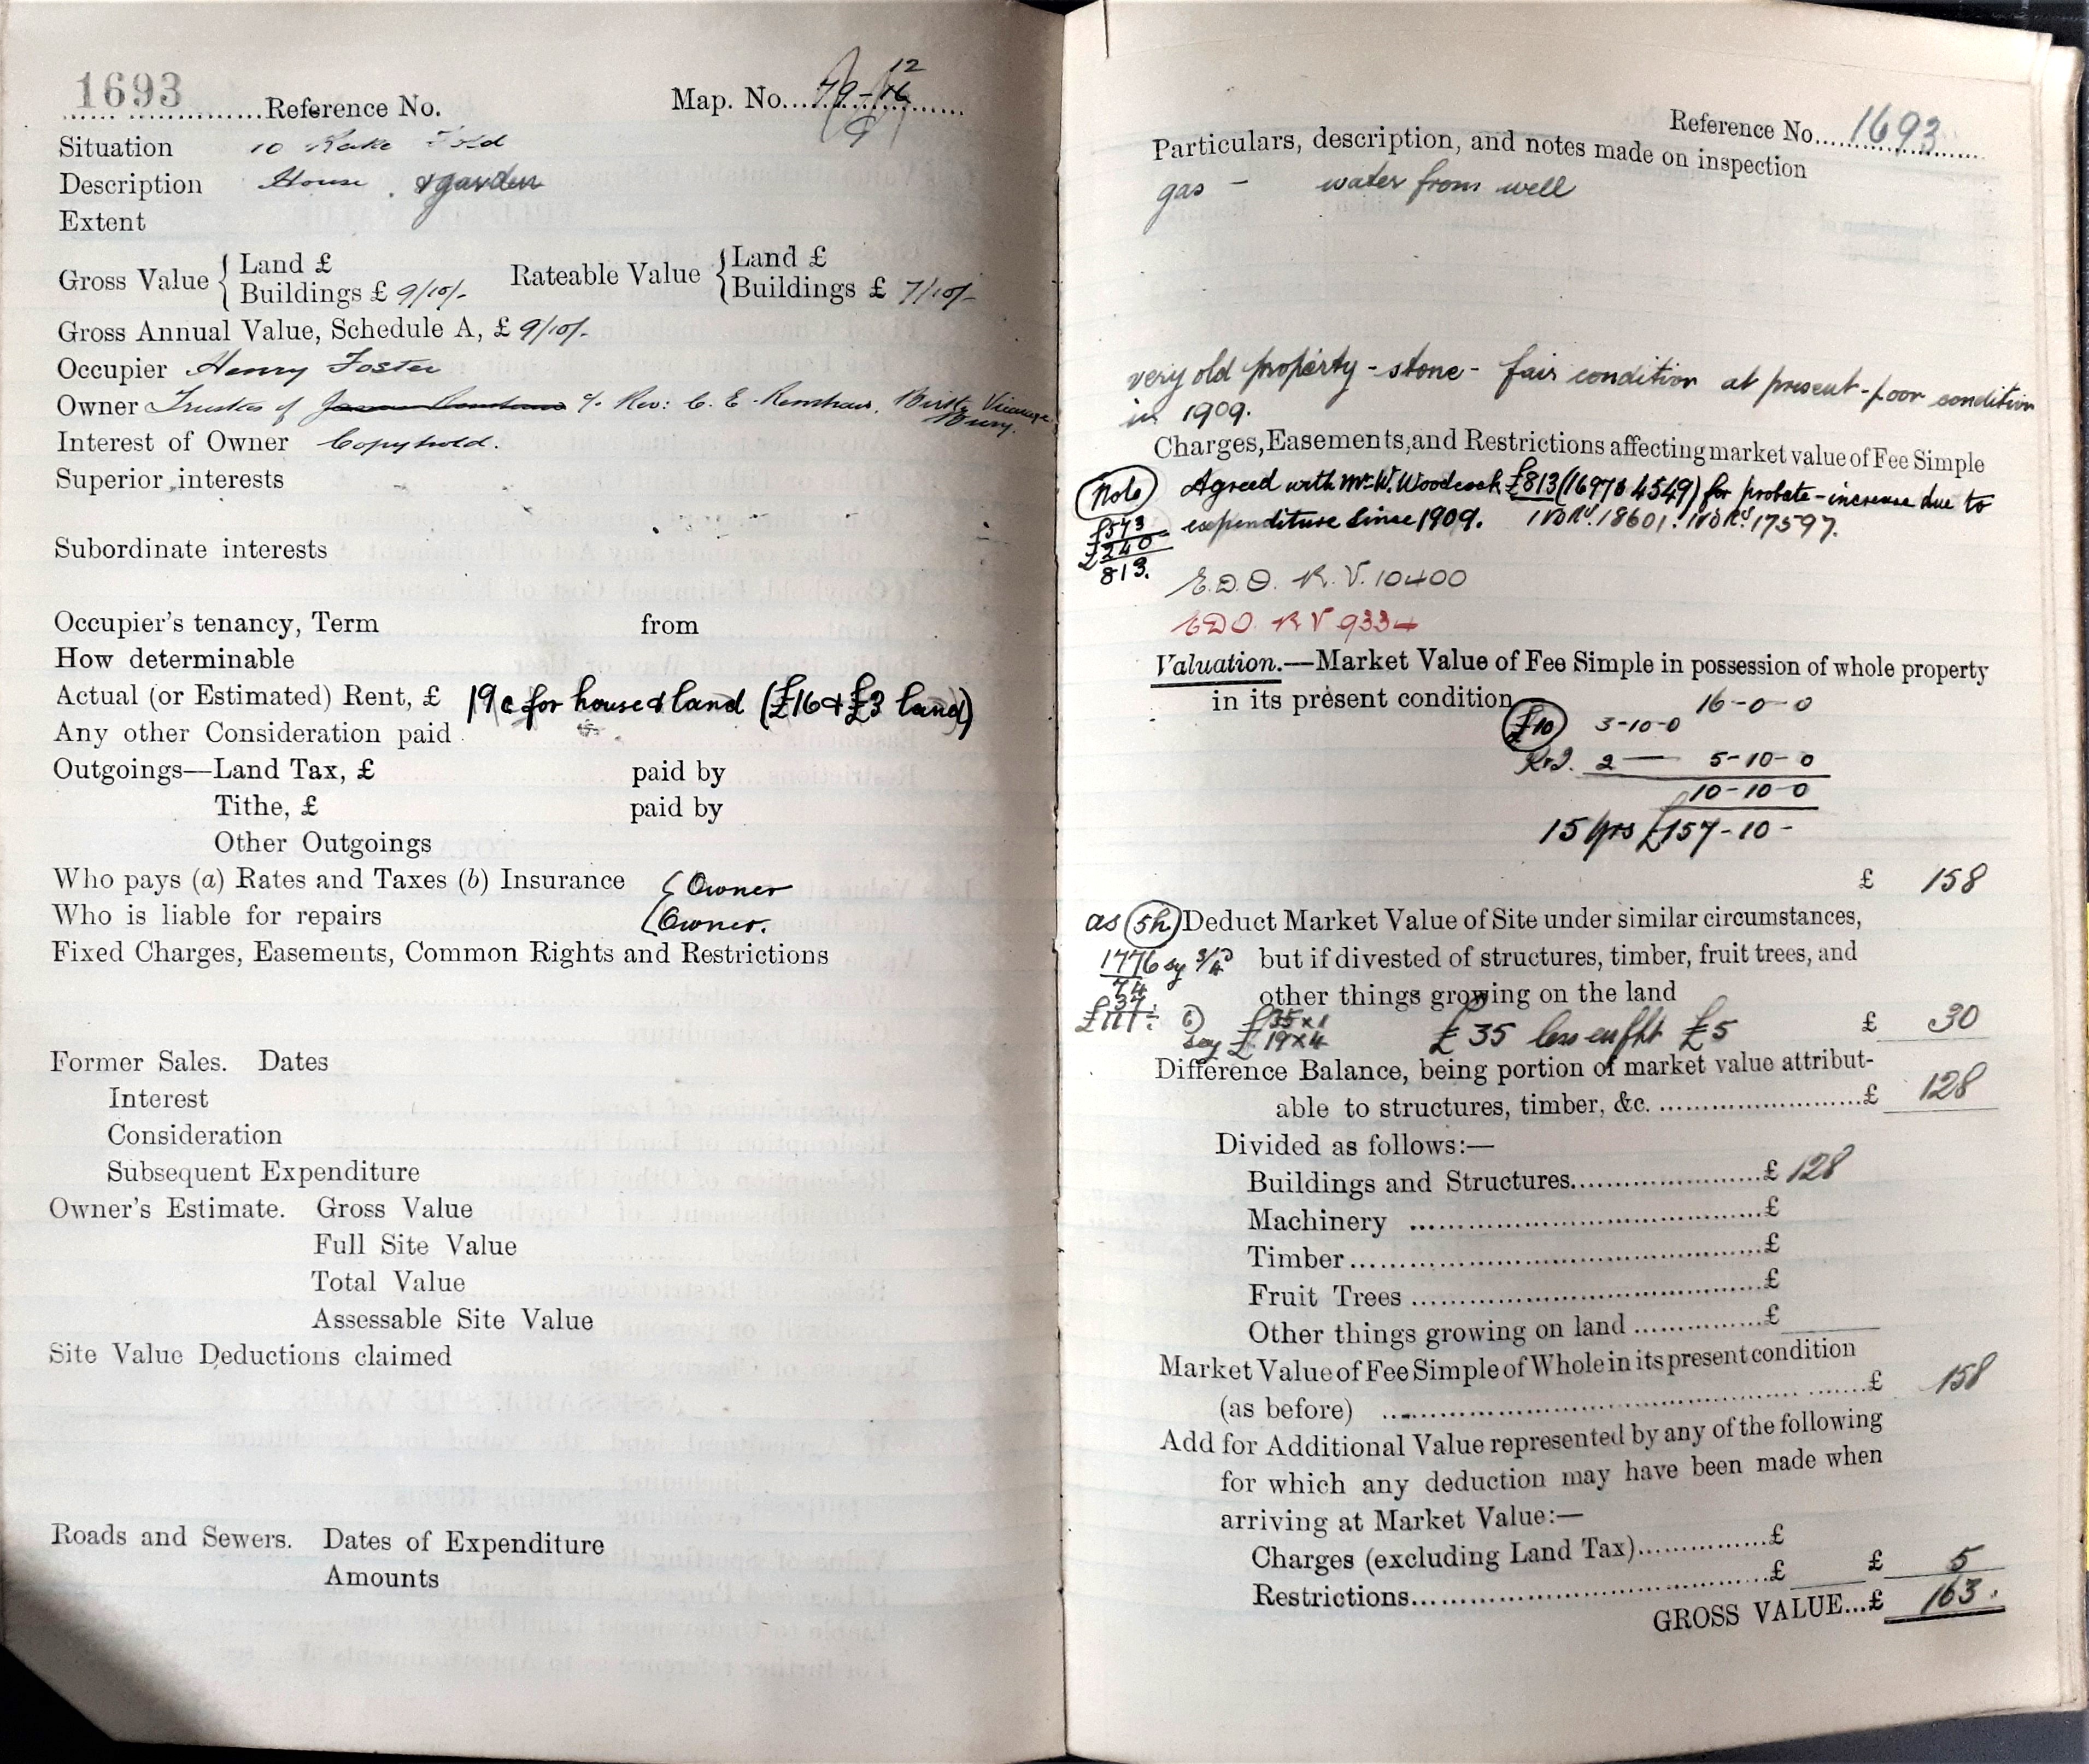 1693 Reference No. Map. No. 79-16 12 9
Situation 10 Rake Fold
Description House & garden
Extent
Gross Value { Land £ Rateable Value { Land £
Buildings £ 9/10/- Buildings £ 7/10/-
Gross Annual Value, Schedule A, £ 9/10/-
Occupier Henry Foster
Owner Trustees of c/o Rev: C. E. Renshaw, Birtle Vicarage
Bury.
Interest of Owner Copyhold.
Superior interests
Subordinate interests
Occupier's tenancy, Term from
How determinable
Actual (or Estimated) Rent, £ 19 for house & land (£16 & £3 land)
Any other Consideration paid
Outgoings—Land Tax, £ paid by
Tithe, £ paid by
Other Outgoings
Who pays (a) Rates and Taxes (b) Insurance { Owner
Who is liable for repairs { Owner.
Fixed Charges, Easements, Common Rights and Restrictions
Former Sales. Dates
Interest
Consideration
Subsequent Expenditure
Owner's Estimate. Gross Value
Full Site Value
Total Value
Assessable Site Value
Site Value Deductions claimed
Roads and Sewers. Dates of Expenditure
Amounts
Reference No. 1693
Particulars, description, and notes made on inspection
gas - water from well
very old property - stone - fair condition at present - poor condition
in 1909.
Charges, Easements, and Restrictions affecting market value of Fee Simple
Note Agreed with Mr. W. Woodcock £813 (1697 & 4549) for probate - increase due to
expenditure since 1909. IVD Rd. 18601. IVD Rd. 17597.
£573
£240
813.
E.D.O. R.V. 10400
EDO. RV 9334
Valuation.—Market Value of Fee Simple in possession of whole property
in its present condition
16-0-0
£10 3-10-0
2 — 5-10-0
10-10-0
15 yrs £157-10-
£ 158
as 5h Deduct Market Value of Site under similar circumstances,
1776 sy but if divested of structures, timber, fruit trees, and
74
other things growing on the land
37
£111 £35x1 £35 less enfht £5 £ 30
say £ 19x4
Difference Balance, being portion of market value attribut-
able to structures, timber, &c. £ 128
Divided as follows:—
Buildings and Structures £ 128
Machinery £
Timber £
Fruit Trees £
Other things growing on land £
Market Value of Fee Simple of Whole in its present condition
(as before) £ 158
Add for Additional Value represented by any of the following
for which any deduction may have been made when
arriving at Market Value:—
Charges (excluding Land Tax) £
Restrictions £ £ 5
GROSS VALUE...£ 163.